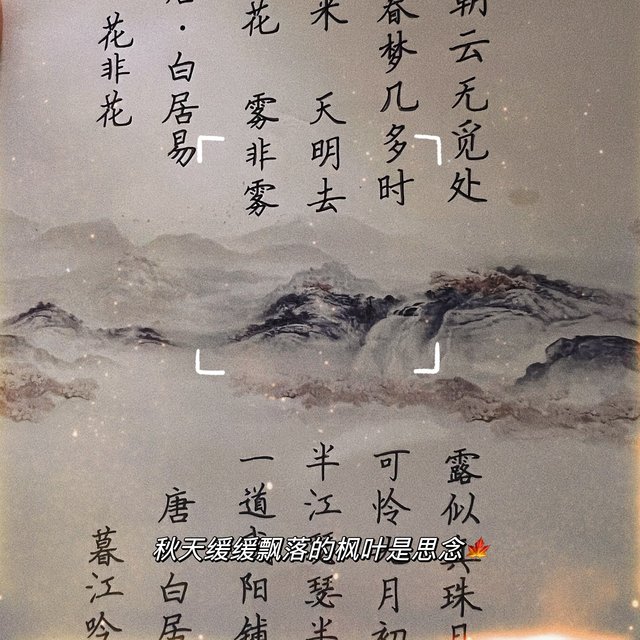 花非花
唐·白居易
花 雾非雾
来 天明去
春梦几多时
朝云无觅处
暮江吟
唐 白居
一道 阳铺
半江瑟瑟半
可怜 月初
露似真珠月
秋天缓缓飘落的枫叶是思念🍁